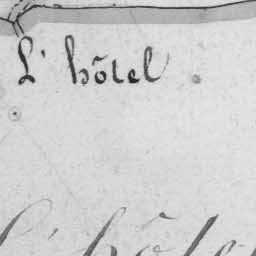 L' hôtel
L' hôtel